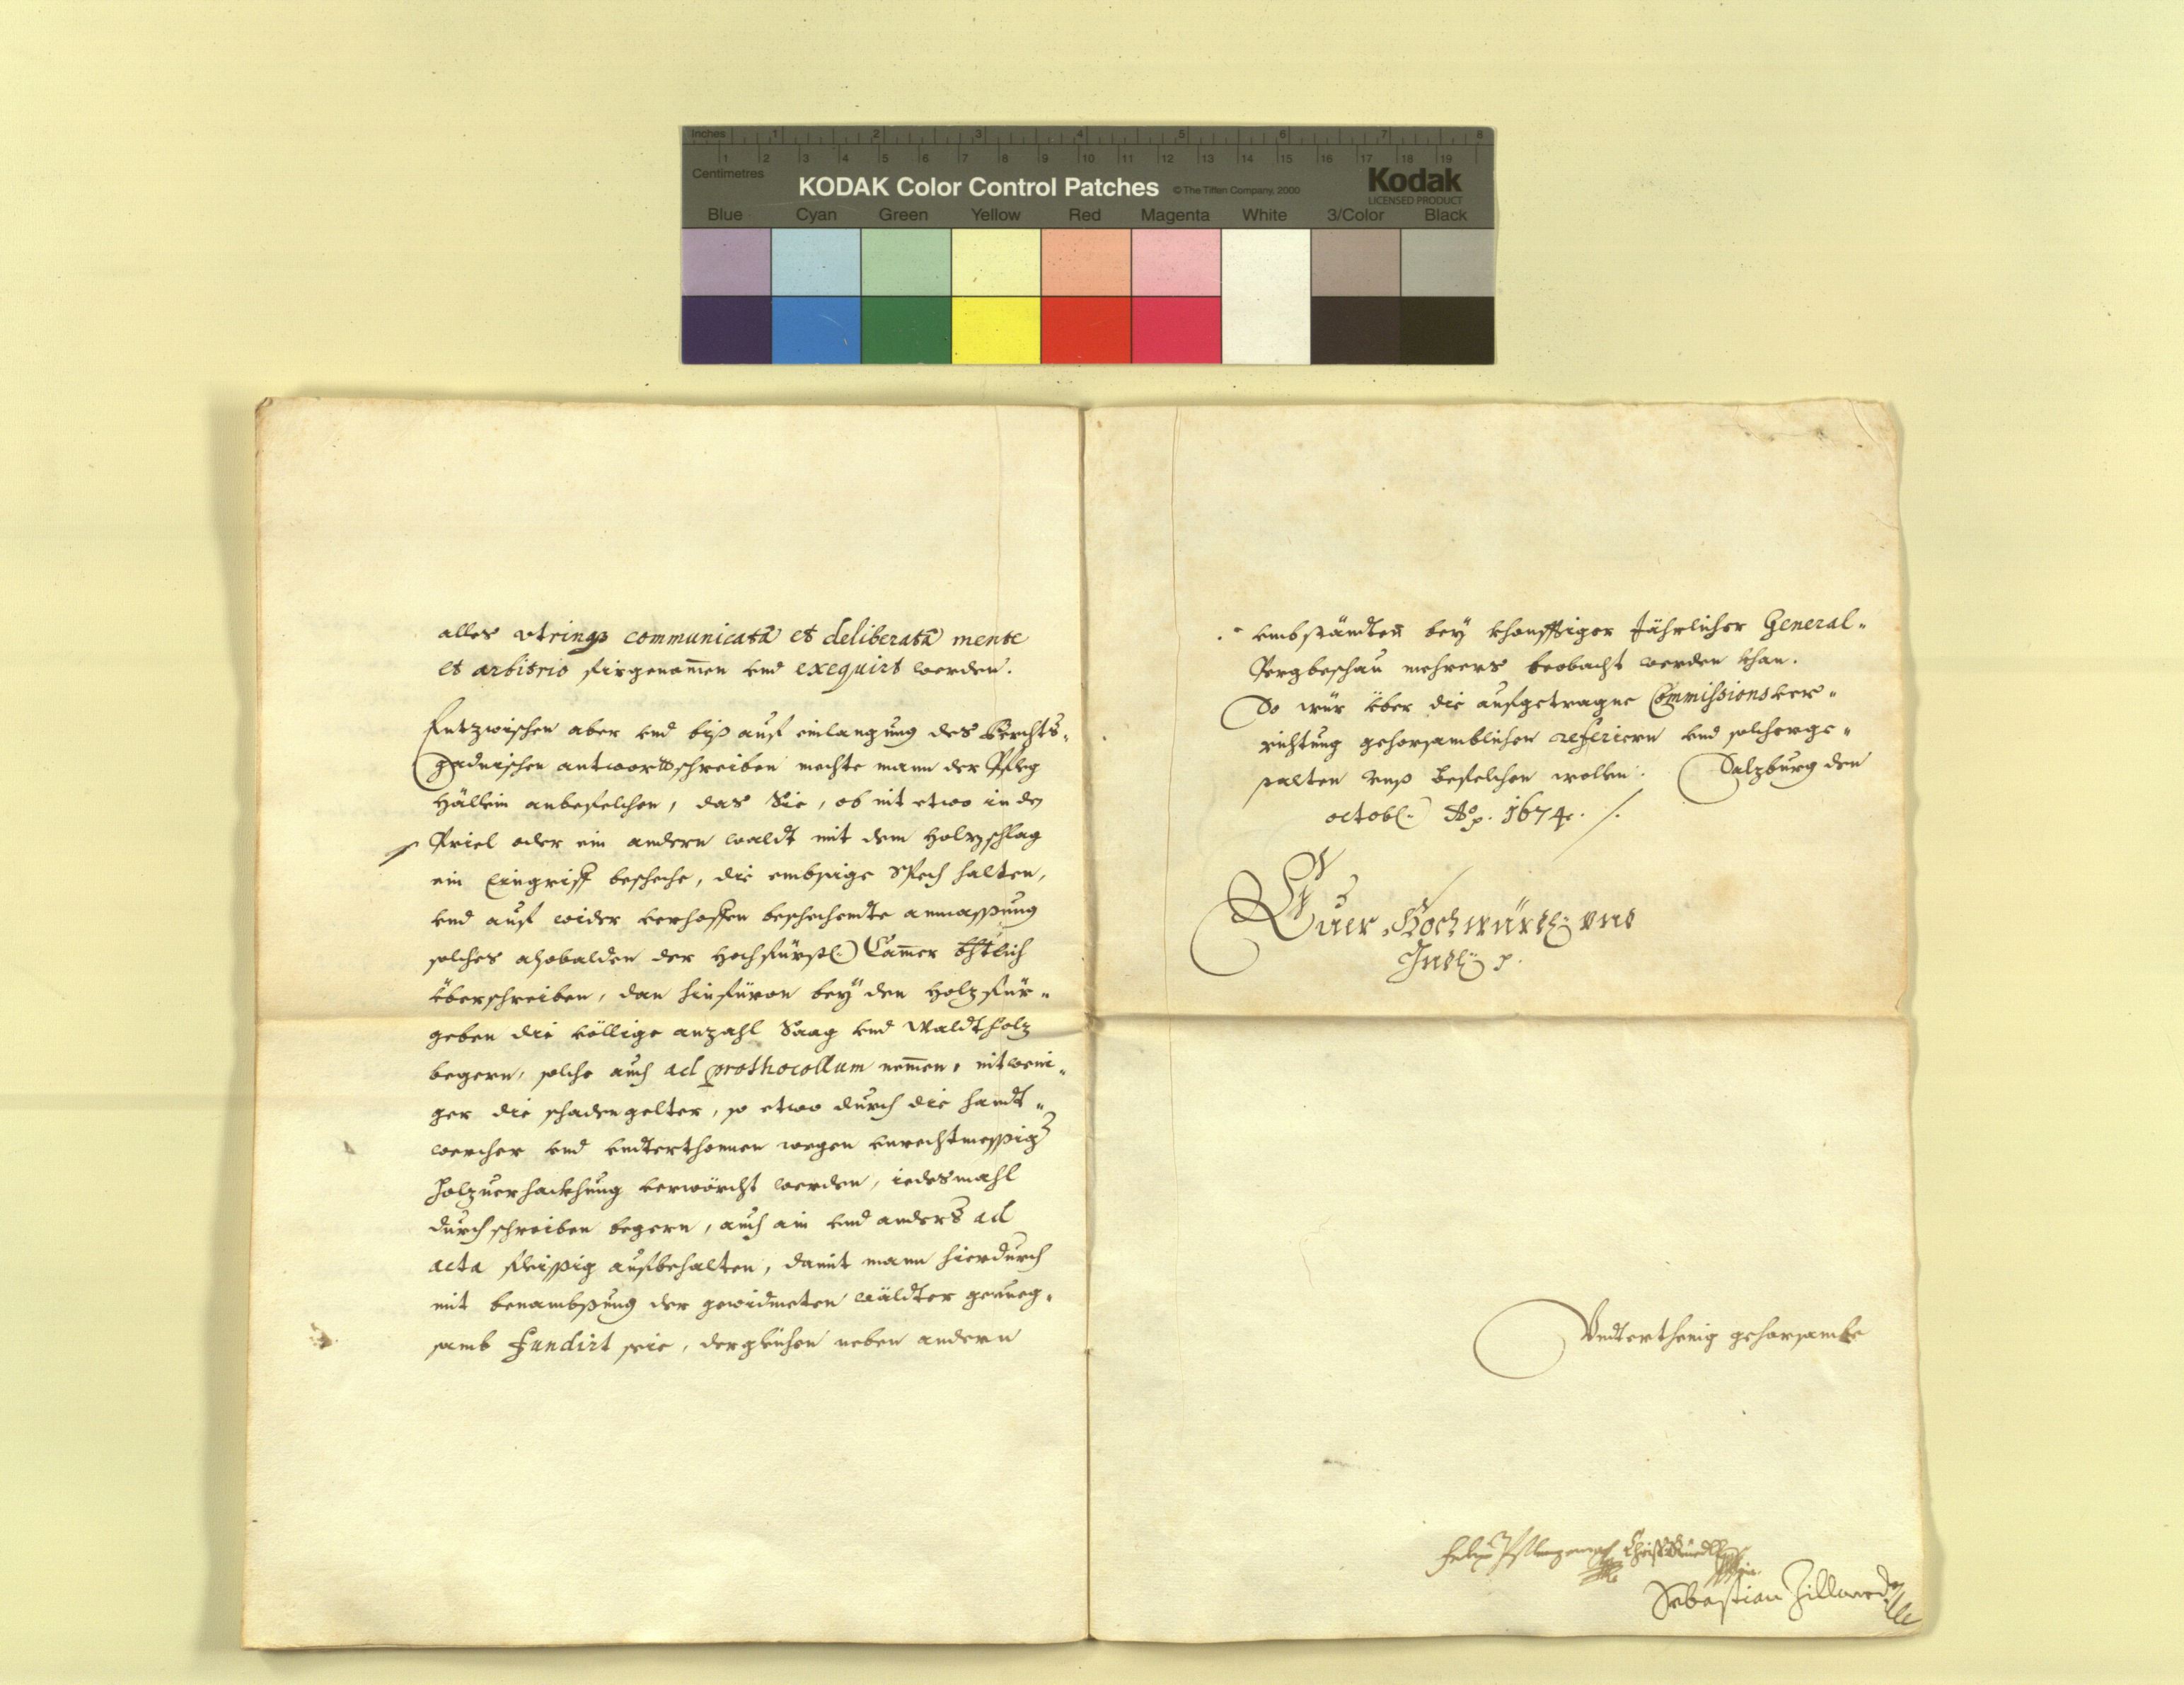 Inches 1 2 3 4 5 6 7 8
1 2 3 4 5 6 7 8 9 10 11 12 13 14 15 16 17 18 19
Centimetres
KODAK Color Control Patches © The Tiffen Company, 2000 Kodak
LICENSED PRODUCT
Blue Cyan Green Yellow Red Magenta White 3/Color Black
alles utrinqz communicatâ et deliberatâ mente
et arbitrio firgenom̄en vnd exequirt werden.
Entzwischen aber vnd biß auf einlangung des Berchts-
gadnischen antwortschreiben mechte mann der Pfleg
Hällein anbefelchen, das Sie, ob nit etwo in dem
Priel oder ein andern waldt mit dem Holzschlag
ein Eingriff bescheche, die embsige Spech halten,
vnd auf wider verhoffen beschechendte anmassung
solches alsobalden der Hochfürstl: Cam̄er
überschreiben, dan hinfüron bey den Holzfür-
geben die völlige anzahl Saag vnd Waldtholz
begern, solche auch ad prothocollum nem̄en, nitweni-
ger die schadengelter, so etwo durch die handt-
wercher vnd vndterthonnen wegen vnrechtmessiger
Holzverhackhung verwürcht werden, iedesmahl
durch schreiben begern, auch ain vnd anders ad
acta fleissig aufbehalten, damit mann hierdurch
mit benambsung der gewidmeten wäldter genueg-
samb fundirt seie, dergleichen neben andern
vmbständten bey khonfftiger Jährlicher General-
Pergbeschau mehrers beobacht werden khan.
So wür über die aufgetragne Commissions ver-
richtung gehorsamblichen referiern vnd solcherge-
stalten vnß befelchen wollen. Salzburg den
octob: Aō. 1674.
Euer Hochwürdl: vnd
Gndl:
Vndterthenig gehorsambe
Felix Christ
Sebastian Zillner